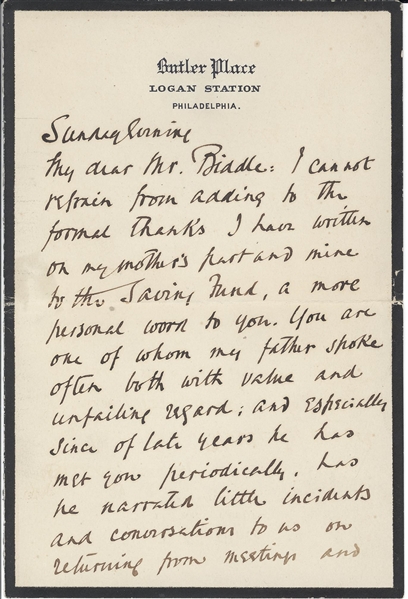 Butler Place
LOGAN STATION
PHILADELPHIA.
Sunday Evening
My dear Mr. Biddle: I cannot
refrain from adding to the
formal thanks I have written
on my mother's part and mine
to the Saving Fund, a more
personal word to you. You are
one of whom my father spoke
often both with value and
unfailing regard; and especially
since of late years he has
met you periodically, has
he narrated little incidents
and conversations to us on
returning from meetings and